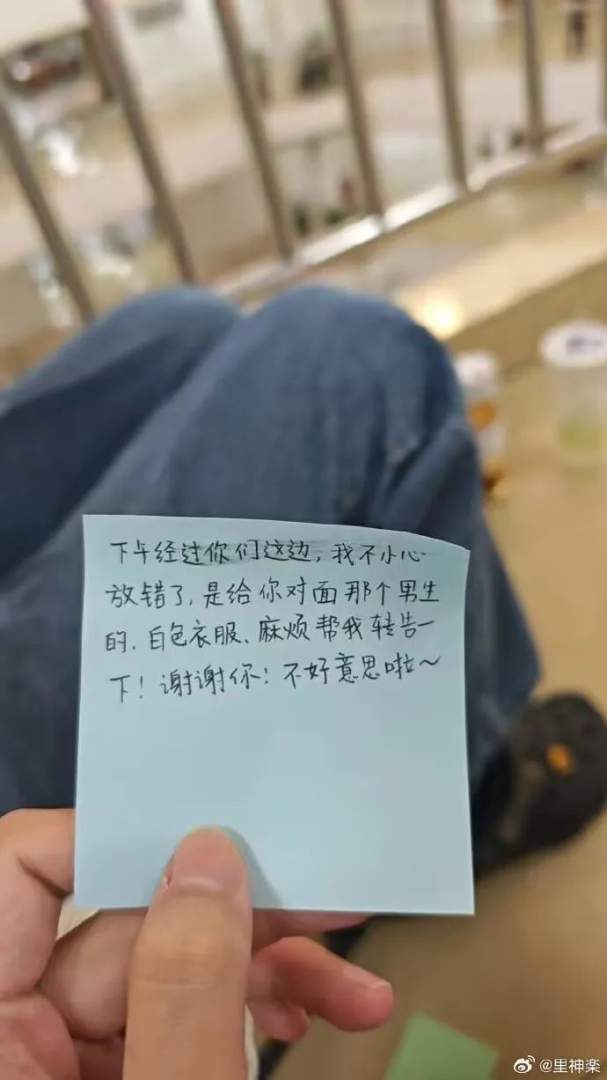 下午经过你们这边，我不小心
放错了，是给你对面那个男生
的，白色衣服、麻烦帮我转告一
下！谢谢你！不好意思啦～
@里神楽